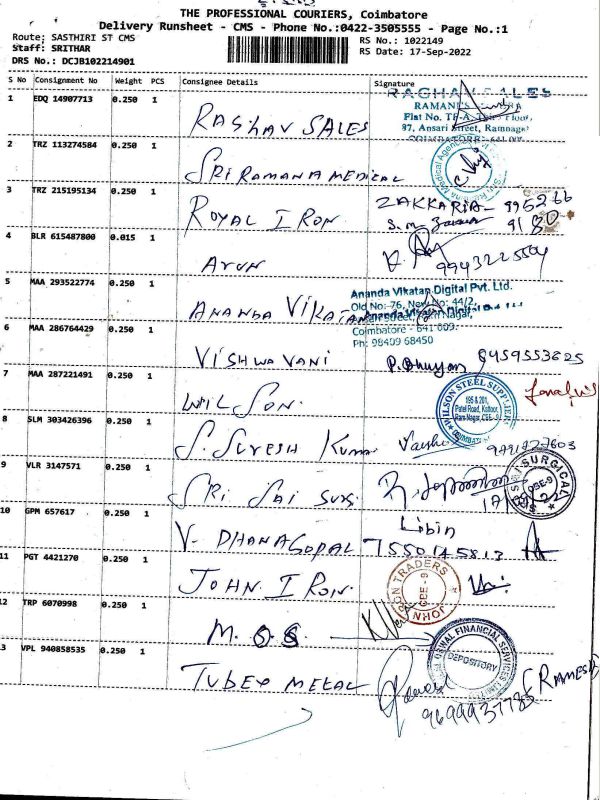 THE PROFESSIONAL COURIERS, Coimbatore
Delivery Runsheet - CMS - Phone No.:0422-3505555 - Page No.:1
Route: SASTHIRI ST CMS
RS No.: 1022149
Staff: SRITHAR
RS Date: 17-Sep-2022
DRS No.: DCJB102214901
S No Consignment No Weight PCS Consignee Details Signature
1 EDQ 14907713 0.250 1 RAGHAV SALES
RAGHAV SALES
RAMANI'S
Flat No. Floor,
97, Ansari Street, Ramnagar
COIMBATORE
2 TRZ 113274584 0.250 1 SRI RAMANA MEDICAL
Medical Agencies
3 TRZ 215195134 0.250 1 ROYAL IRON ZAKKARIA 995266
9180
4 BLR 615487800 0.015 1 ARUN 9943225504
5 MAA 293522774 0.250 1 ANANDA VIKATAN
Ananda Vikatan Digital Pvt. Ltd.
Old No:-76, New No: 44/2,
Coimbatore - 641 009.
Ph: 98409 68450
6 MAA 286764429 0.250 1 VISHWAVANI P. Bhuyan 8459553825
7 MAA 287221491 0.250 1 WILSON.
WILSON STEEL SUPPLIERS
195 & 201,
Patel Road, Kattoor,
Ram Nagar, CBE-9.
8 SLM 303426396 0.250 1 S. SURESH Kumar 9791427603
9 VLR 3147571 0.250 1 SRI SAI SURG.
SRI SAI SURGICALS
CBE-9
10 GPM 657617 0.250 1 V. DHANAGOPAL Libin
7550145813
11 PGT 4421270 0.250 1 JOHN. IRON.
JOHN IRON TRADERS
CBE - 9
12 TRP 6070998 0.250 1 M.O.S.
OSWAL FINANCIAL SERVICES LIMITED
DEPOSITORY
13 VPL 940858535 0.250 1 TUBEX METAL (RAMESH)
9699937785